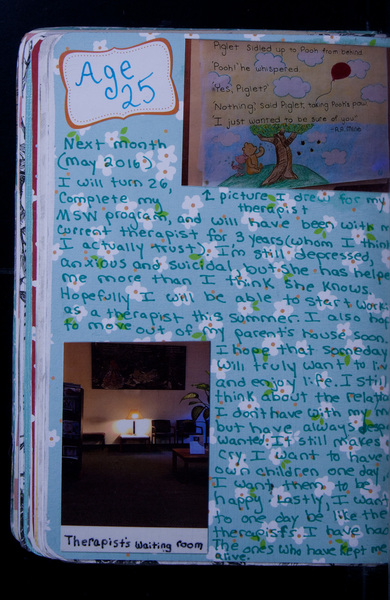 Age
25
Piglet sidled up to Pooh from behind.
"Pooh!" he whispered.
"Yes, Piglet?"
"Nothing," said Piglet, taking Pooh's paw.
"I just wanted to be sure of you."
Next month
(May 2016)
I will turn 26,
↑ picture I drew for my
therapist
Complete my
MSW program, and will have been with m
current therapist for 3 years (whom I thin
I actually trust). I'm still depressed,
anxious and suicidal, but she has helpe
me more than I think she knows.
Hopefully I will be able to start work
as a therapist this summer. I also ho
to move out of my parent's house soon.
I hope that someda
will truly want to li
and enjoy life. I stil
think about the relatio
I don't have with my
but have always desp
wanted. It still makes
cry. I want to have
own children one day
I want them to be
happy. Lastly, I wan
to one day be like the
therapists I have ha
The ones who have kept me
alive.
Therapist's waiting room